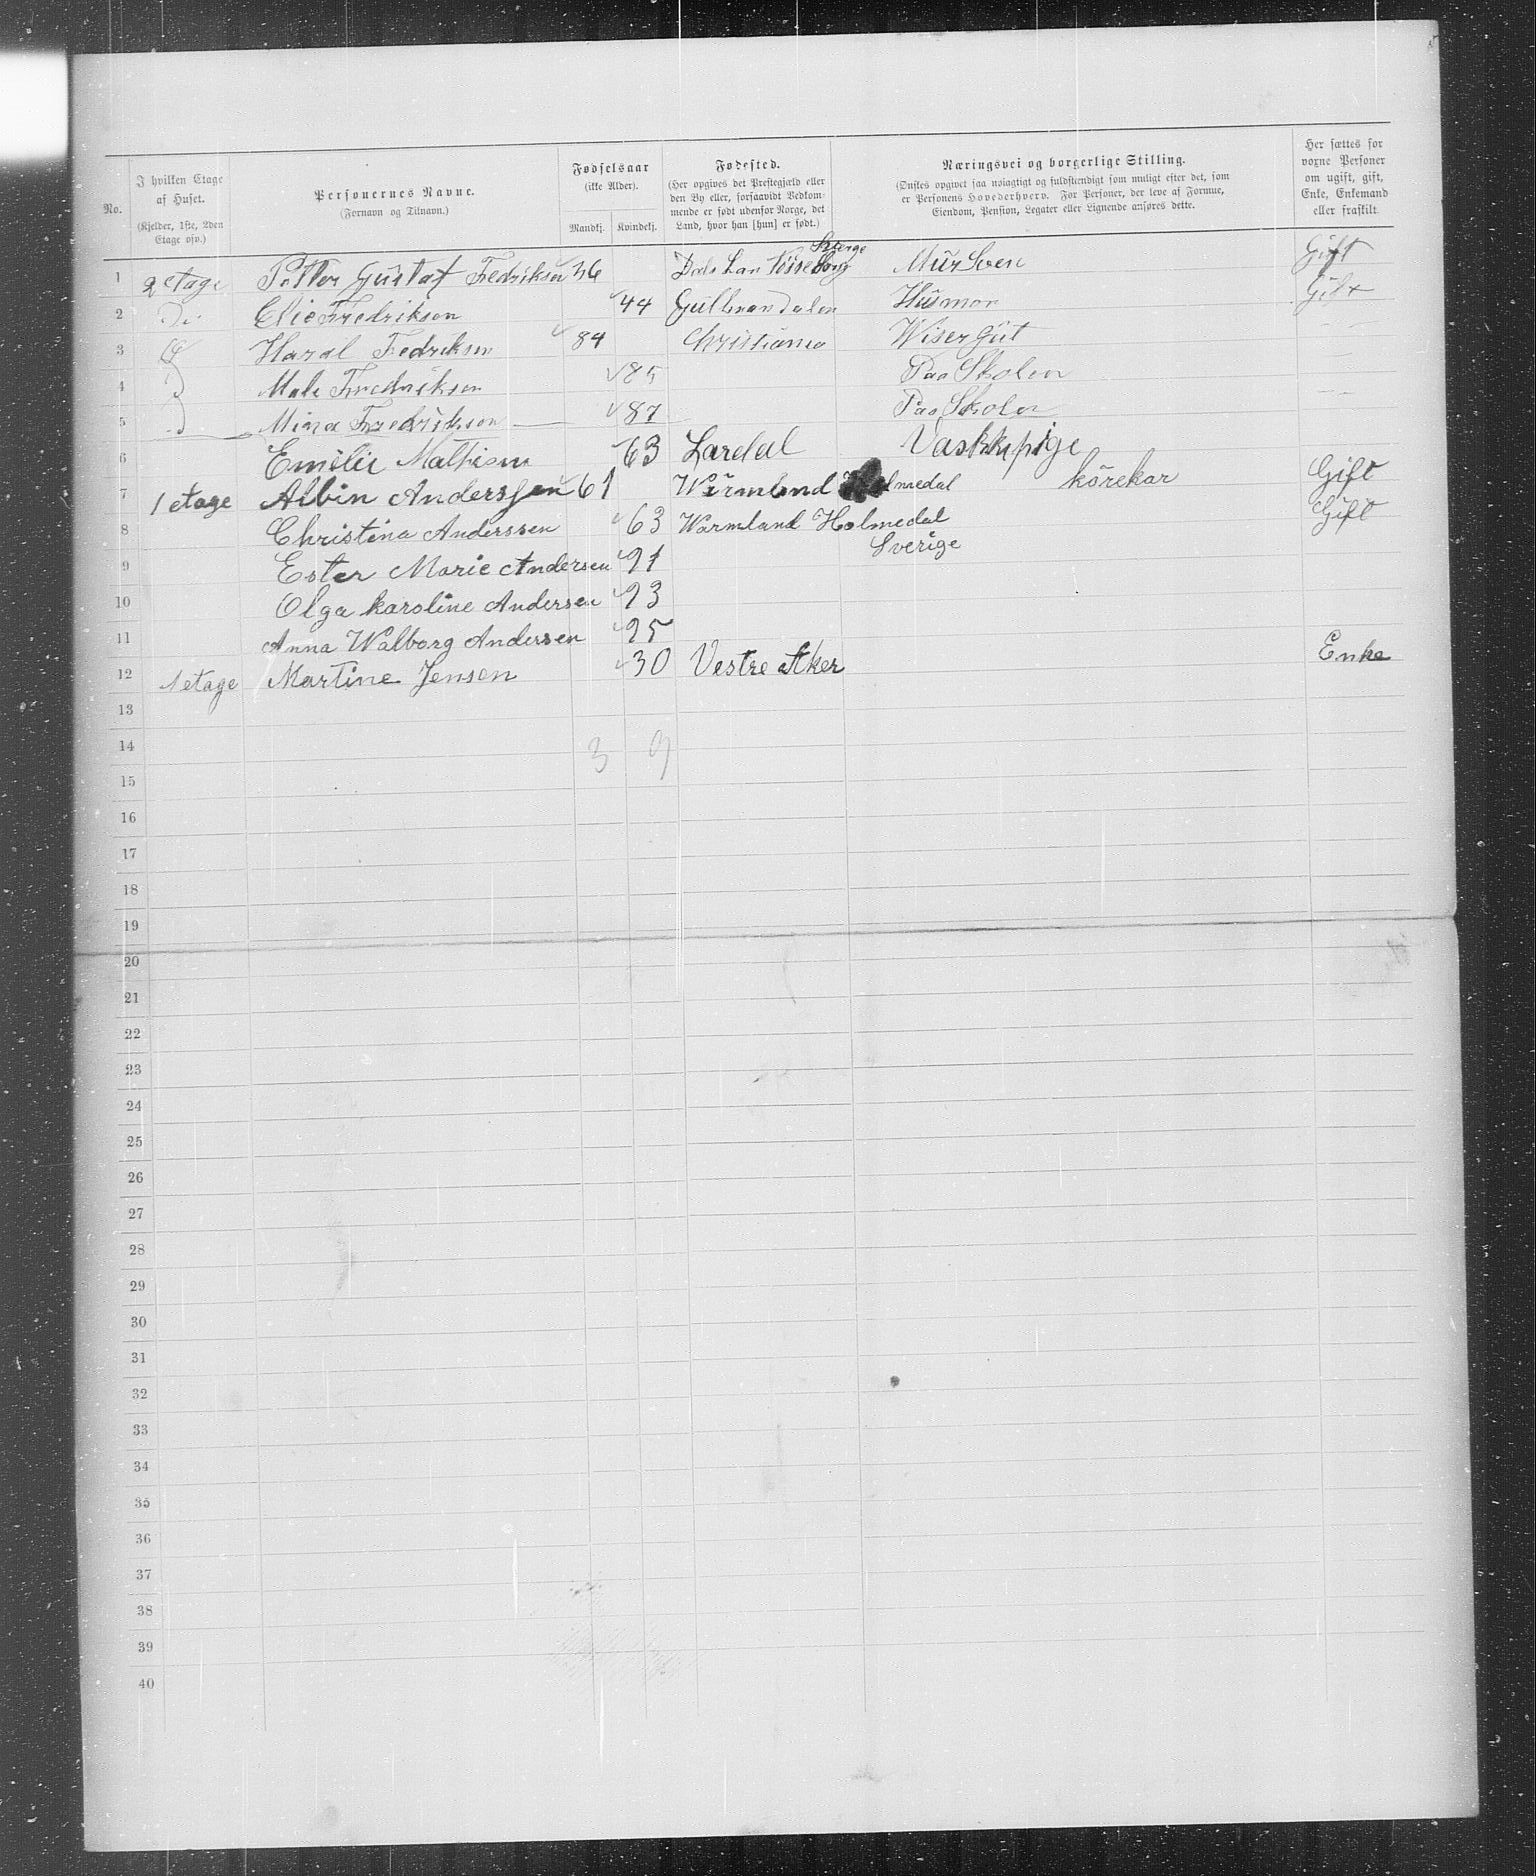 No.
I hvilken Etage af Huset.
(Kjelder, 1ste, 2den Etage osv.)
Personernes Navne.
(Fornavn og Tilnavn.)
Fødselsaar
(ikke Alder).
Mandkj. Kvindekj.
Fødested.
(Her opgives det Prestegjæld eller den By eller, forsaavidt Vedkommende er født udenfor Norge, det Land, hvor han [hun] er født.)
Næringsvei og borgerlige Stilling.
(Ønskes opgivet saa nøiagtigt og fuldstændigt som muligt efter det, som er Personens Hovederhverv. For Personer, der leve af Formue, Eiendom, Pension, Legater eller Lignende anføres dette.
Her sættes for voxne Personer om ugift, gift, Enke, Enkemand eller fraskilt.
1 2 etage Gustaf Fedriksen 46 Gift
2 Do Elie Fredriksen 44 Gulbrandalen Husmor Gift
3 Haral Fedriksen 84 Christiania Wisergut
4 Fredriksen 85 Paa Skolen
5 Mina Fredriksen 87 Paa Skolen
6 Emelie Mathisen 63 Lardal Vaskkepige
7 1 etage Albin Anderssen 61 Warmland körekar Gift
8 Christina Anderssen 63 Warmland Holmedal Sverige Gift
9 Ester Marie Andersen 91
10 Olga karoline Andersen 93
11 Anna Walborg Andersen 95
12 1 etage Martine Jensen 30 Vestre Aker Enke
13
14 3 9
15
16
17
18
19
20
21
22
23
24
25
26
27
28
29
30
31
32
33
34
35
36
37
38
39
40